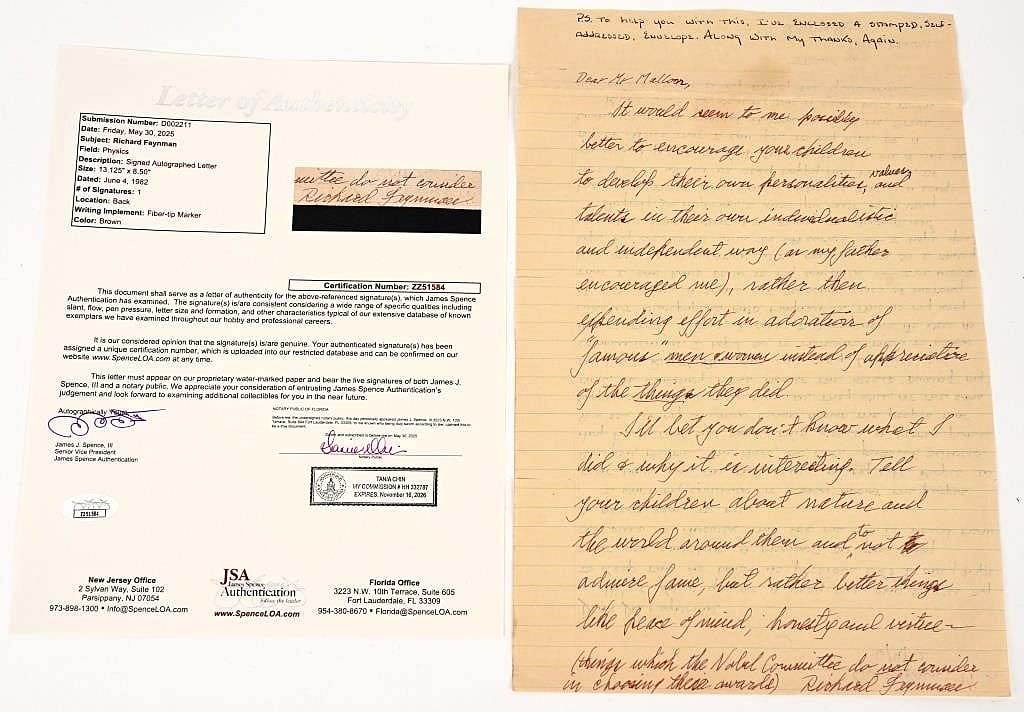 Letter of Authenticity
Submission Number: D002211
Date: Friday, May 30, 2025
Subject: Richard Feynman
Field: Physics
Description: Signed Autographed Letter
Size: 13.125" x 8.50"
Dated: June 4, 1982
# of Signatures: 1
Location: Back
Writing Implement: Fiber-tip Marker
Color: Brown
mittee do not consider
Richard Feynman
Certification Number: ZZ51584
This document shall serve as a letter of authenticity for the above-referenced signature(s), which James Spence
Authentication has examined. The signature(s) is/are consistent considering a wide range of specific qualities including
slant, flow, pen pressure, letter size and formation, and other characteristics typical of our extensive database of known
exemplars we have examined throughout our hobby and professional careers.
It is our considered opinion that the signature(s) is/are genuine. Your authenticated signature(s) has been
assigned a unique certification number, which is uploaded into our restricted database and can be confirmed on our
website www.SpenceLOA.com at any time.
This letter must appear on our proprietary water-marked paper and bear the live signatures of both James J.
Spence, III and a notary public. We appreciate your consideration of entrusting James Spence Authentication's
judgement and look forward to examining additional collectibles for you in the near future.
Autographically Yours,
James J. Spence, III
Senior Vice President
James Spence Authentication
NOTARY PUBLIC OF FLORIDA
Notary Public
TANIA CHIN
MY COMMISSION # HH 332787
EXPIRES: November 16, 2026
New Jersey Office
2 Sylvan Way, Suite 102
Parsippany, NJ 07054
973-898-1300 • Info@SpenceLOA.com
JSA
James Spence
Authentication
www.SpenceLOA.com
Florida Office
3223 N.W. 10th Terrace, Suite 605
Fort Lauderdale, FL 33309
954-380-8670 • Florida@SpenceLOA.com
P.S. To help you with this, I've enclosed a stamped, self-
addressed, envelope. Along with my thanks, again.
Dear Mr Malloon,
It would seem to me possibly
better to encourage your children
to develop their own personalities, values, and
talents in their own individualistic
and independent way (as my father
encouraged me), rather then
expending effort in adoration of
"famous" men & women instead of appreciation
of the things they did.
I'll bet you don't know what I
did & why it is interesting. Tell
your children about nature and
the world around them and to not
admire fame, but rather better things
like peace of mind, honesty and virtue –
(things which the Nobel Committee do not consider
in choosing these awards) Richard Feynman